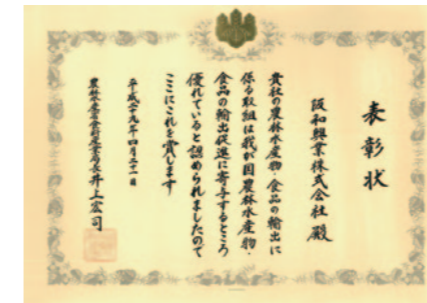 表彰状
阪和興業株式会社 殿
貴社の農林水産物・食品の輸出に
係る取組は我が国農林水産物・
食品の輸出促進に寄与するところ
優れていると認められましたので
ここにこれを賞します
平成二十九年四月二十一日
農林水産省食料産業局長 井上宏司